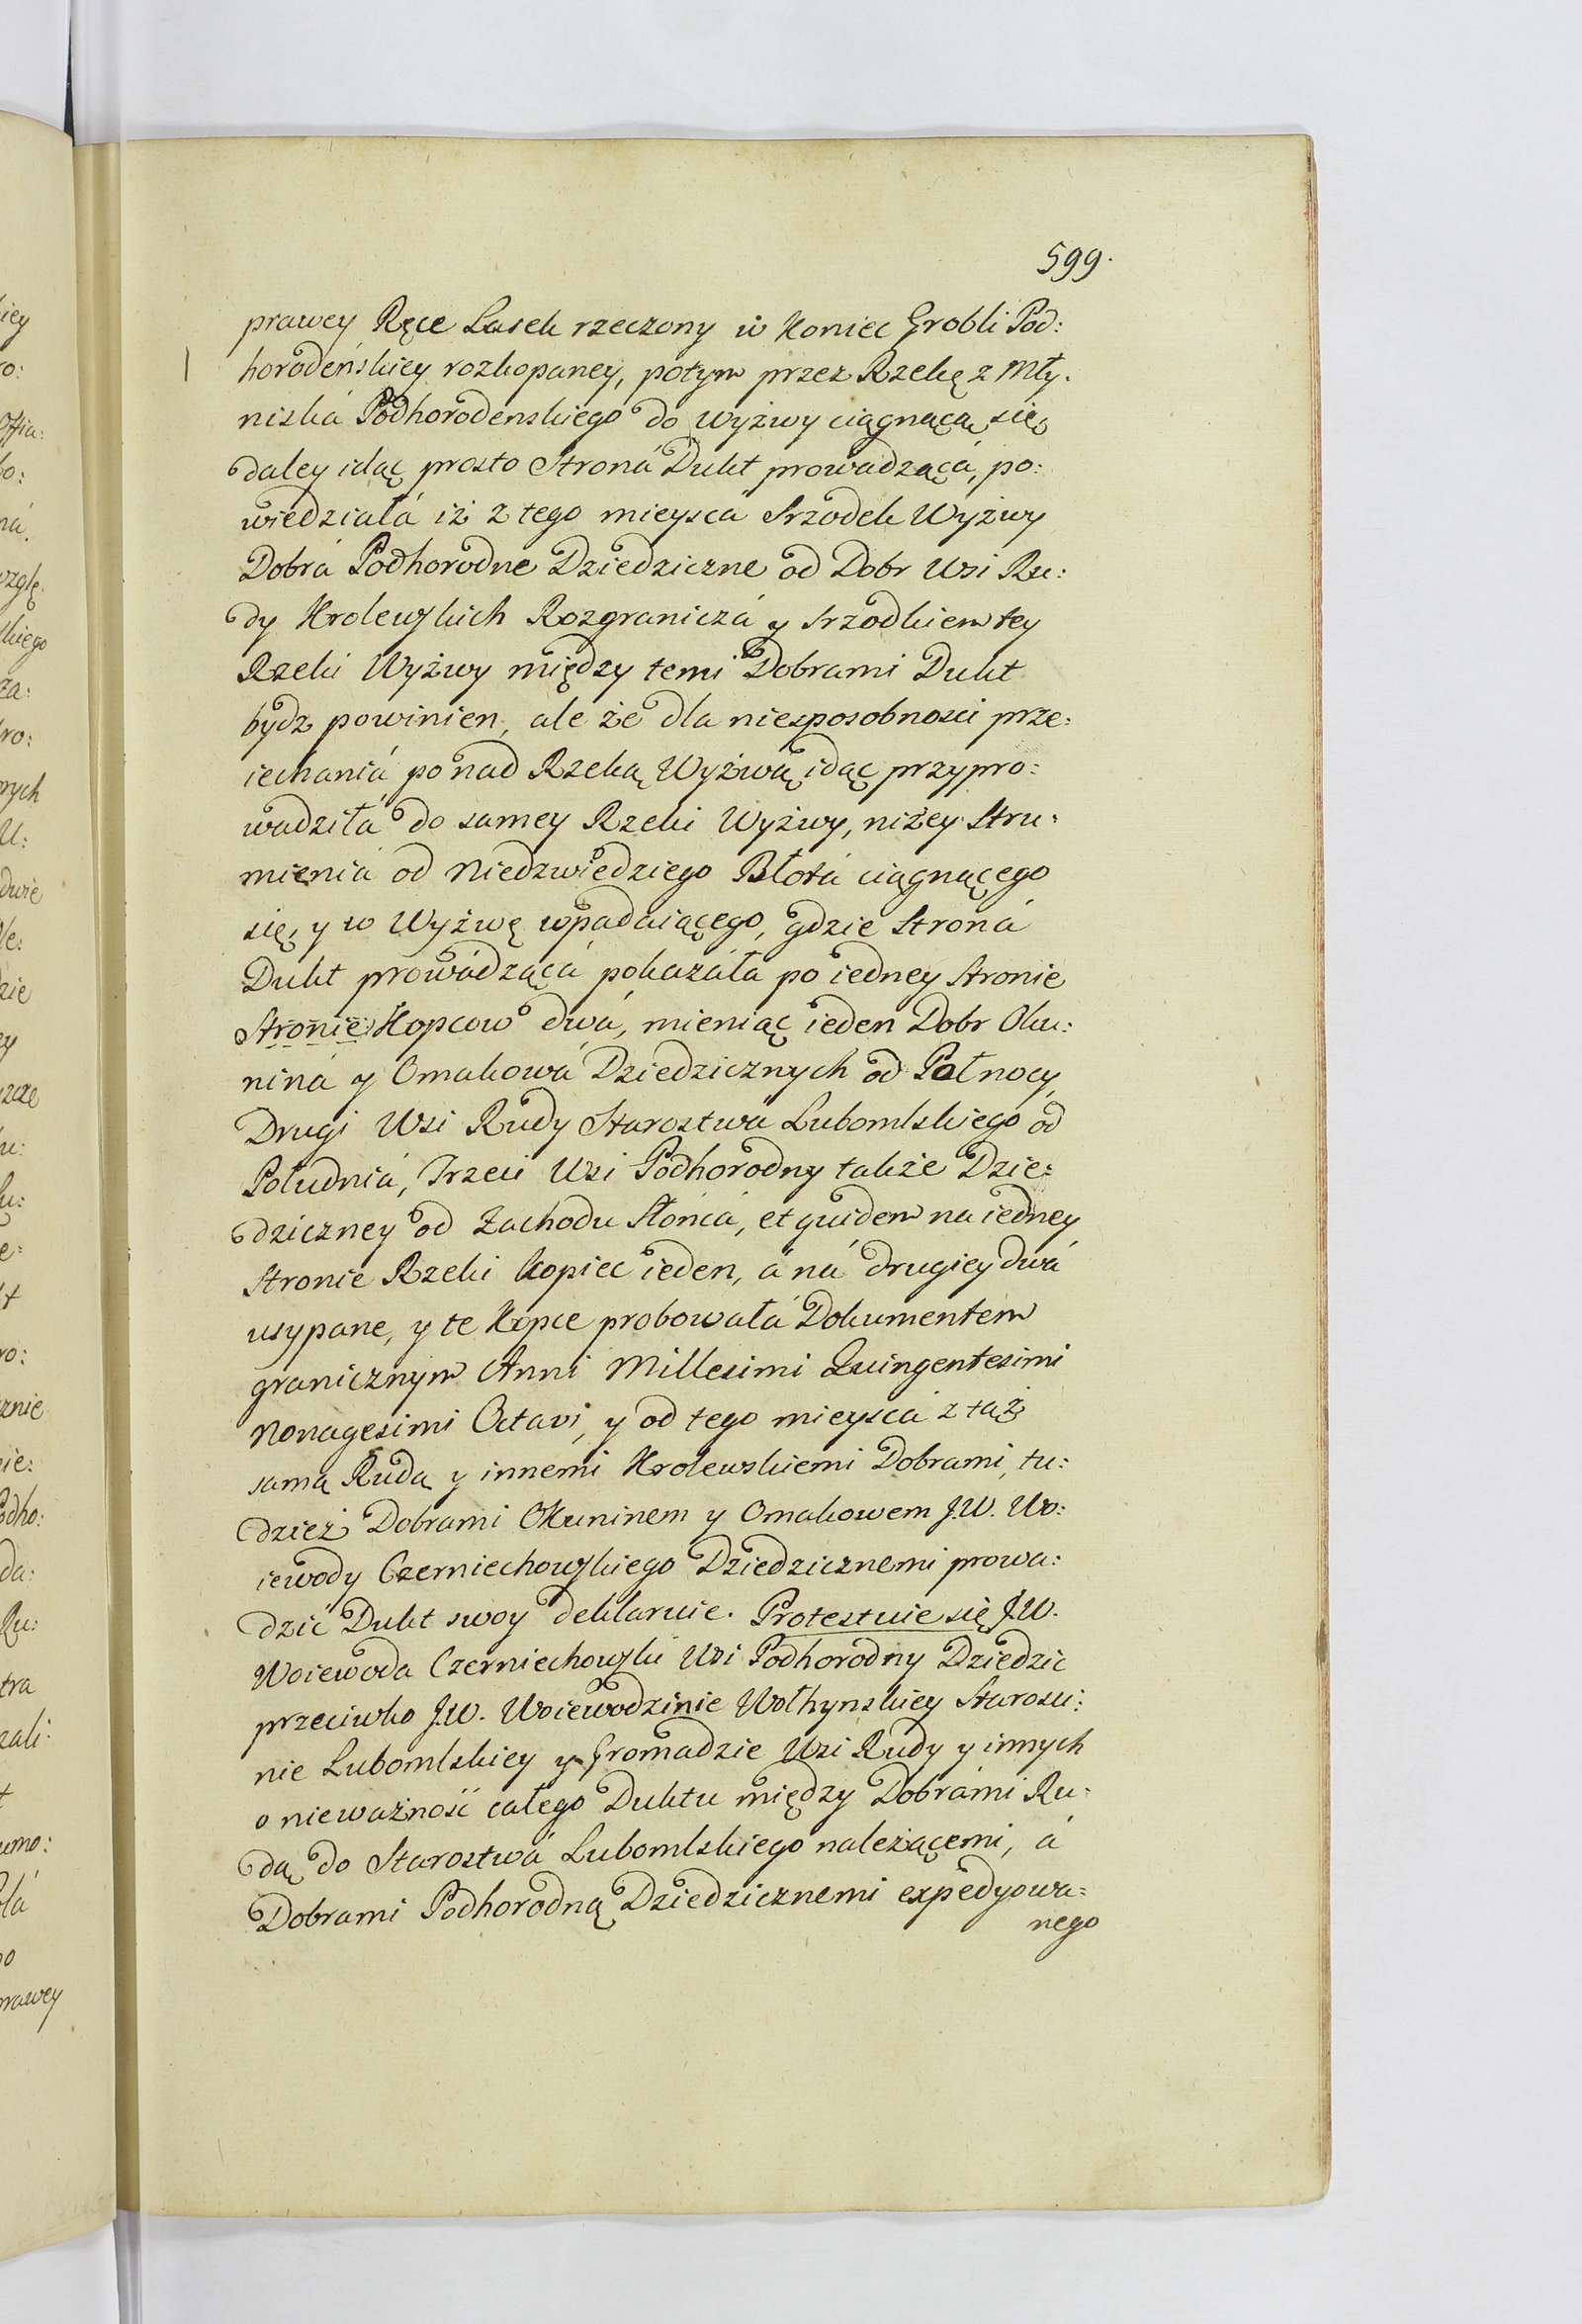 599.
prawey Ręce Lasek rzeczony w Koniec Grobli Pod:
horodeńskiey rozkopaney, potym przez Rzekę z Mły.
niská Podhorodenskiego do Wyżwy ciągnącą się
daley idąc prosto Stroná Dukt prowadząca, po:
wiedziałá iż z tego mieyscá Srzodek Wyżwy
Dobrá Podhorodne Dziedziczne od Dobr Wsi Ru:
dy Krolewskich Rozgraniczá y Srzodkiem tey
Rzeki Wyżwy między temi Dobrami Dukt
bydz powinien, ale że dla niesposobnosci prze:
iechaniá ponad Rzeką Wyżwą idąc przypro:
wadziłá do samey Rzeki Wyżwy, niżey Stru:
mieniá od Niedzwiedziego Błotá ciągnącego
się, y w Wyżwę wpadaiącego, gdzie Stroná
Dukt prowádzącá pokazáła po iedney Stronie
Stronie Kopcow dwá, mieniąc ieden Dobr Oku:
niná y Omakowá Dziedzicznych od Połnocy,
Drugi Wsi Rudy Starostwá Lubomlskiego od
Południá, Trzeci Wsi Podhorodny także Dzie:
dziczney od Zachodu Słońcá, et quidem na iedney
Stronie Rzeki kopiec ieden, á ná drugiey dwá
usypane, y te Kopce probowałá Dokumentem
granicznym Anni Millesimi Quingentesimi
Nonagesimi Octavi, y od tego mieyscá z tąż
samą Rudą y innemi Krolewskiemi Dobrami, tu:
dzież Dobrami Okuninem y Omakowem J.W. Wo:
iewody Czerniechowskiego Dziedzicznemi prowa:
dzić Dukt swoy deklaruie. Protestuie się J.W.
Woiewoda Czerniechowski Wsi Podhorodny Dziedzic
przeciwko J.W. Woiewodzinie Wołhynskiey Starosci:
nie Lubomlskiey y Gromadzie Wsi Rudy y innych
o nieważność całego Duktu między Dobrámi Ru:
dą do Starostwá Lubomlskiego należącemi, á
Dobrami Podhorodną Dziedzicznemi expedyowa:
nego